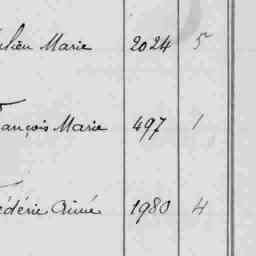 ulien Marie 2024 5
ançois Marie 497 1
édéric Aimé 1980 4